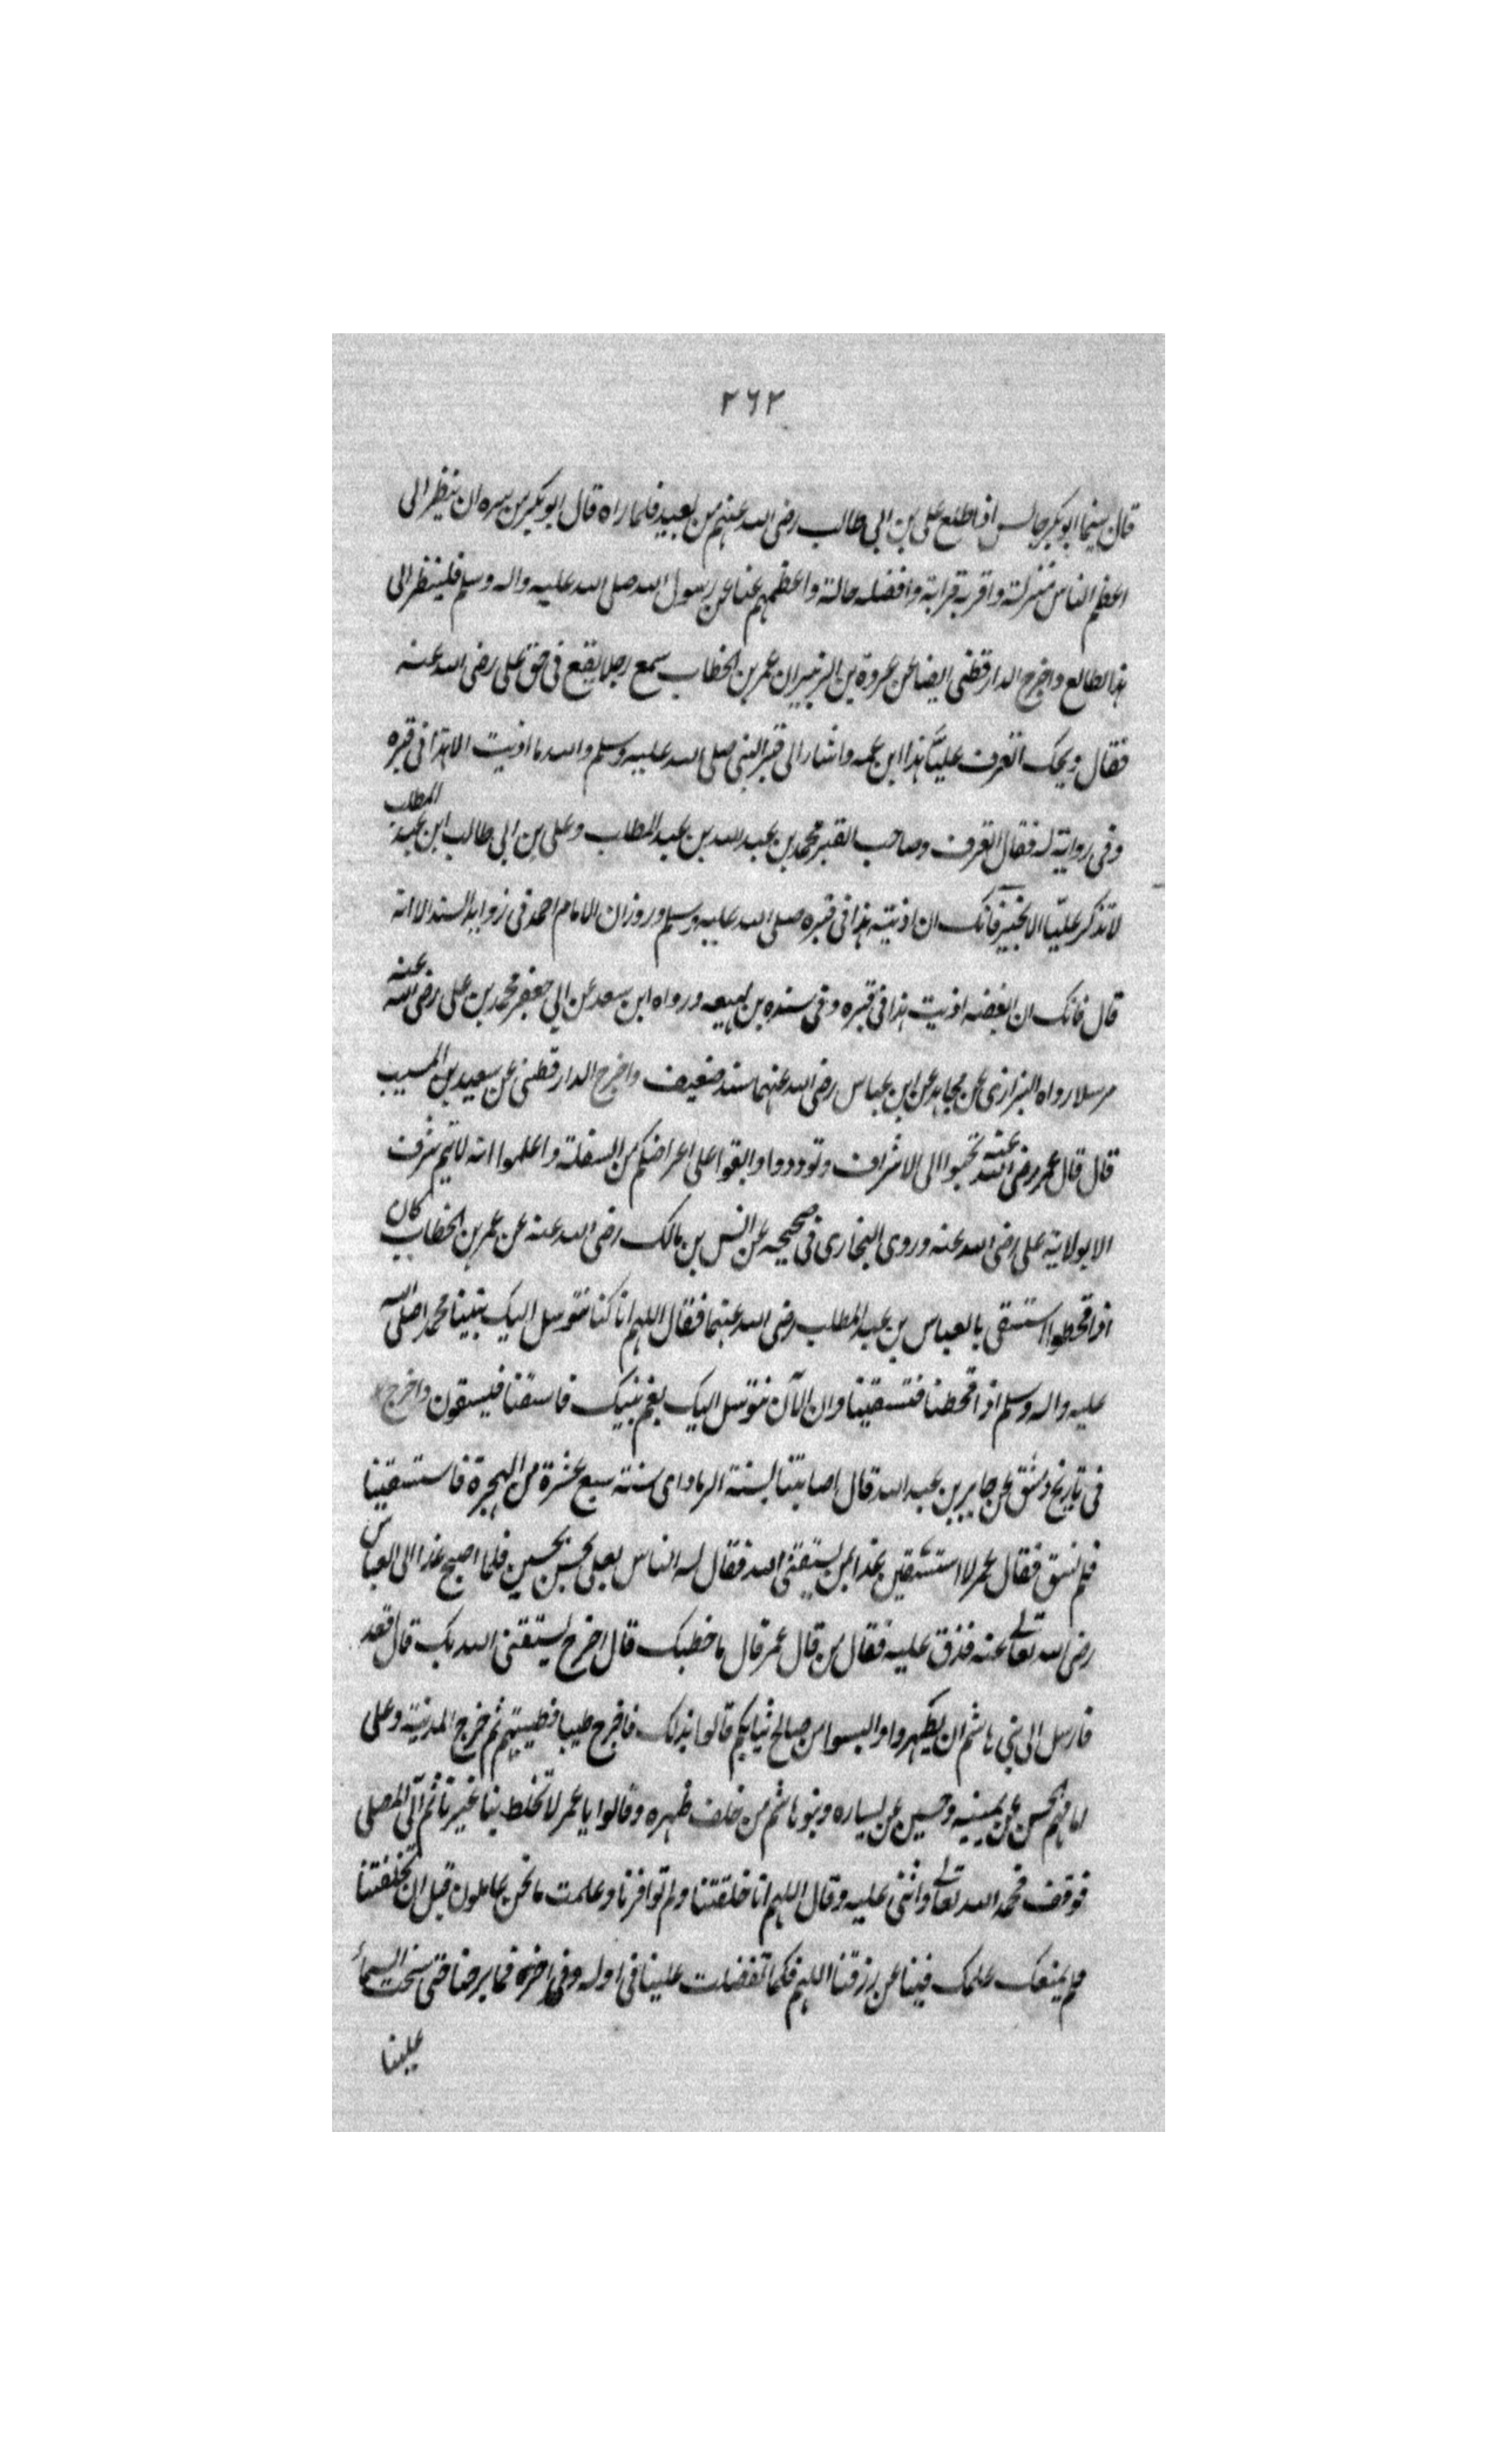 ٢٦٢
قال بينما ابو بكر جالس اذا طلع علی بن ابی طالب رضی الله عنهم من بعيد فلما راه قال ابو بكر من سره ان ينظر الی
اعظم الناس منزلة واقربه قرابة وافضله حالة واعظمهم عنا عن رسول الله صلی الله عليه واله وسلم فلينظر الی
هذا الطالع واخرج الدارقطنی ايضا عن عروة بن الزبير ان عمر بن الخطاب سمع رجلا يقع فی حق علی رضی الله عنه
فقال ويحك اتعرف عليًا هذا ابن عمه واشار الی قبر النبی صلی الله عليه وسلم والله ما اذيت الا هذا فی قبره
وفی رواية له فقال اتعرف وصاحب القبر محمد بن عبد الله بن عبد المطلب وعلی بن ابی طالب ابن عبد المطلب
لا تذكر عليّا الا بخير فانك ان اذيته هذا فی قبره صلی الله عليه وسلم وروز ان الامام احمد فی زوايد المسند الا انه
قال فانك ان ابغضه اذيت هذا فی قبره وفی سنده بن لهيعه ورواه ابن سعد عن ابی جعفر محمد بن علی رضی الله عنه
مرسلا رواه البزازی عن مجاهد عن ابن عباس رضی الله عنهما سند ضعيف واخرج الدارقطنی عن سعيد بن المسيب
قال قال عمر رضی الله عنه تحببوا الی الاشراف وتوددوا واتقوا علی اعراضكم من السفلة واعلموا انه لا يتم شرف
الا بولاية علی رضی الله عنه وروی البخاری فی صحيحه عن انس بن مالك رضی الله عنه عن عمر بن الخطاب كان
اذا قحطوا استسقی بالعباس بن عبد المطلب رضی الله عنهما فقال اللهم انا كنا نتوسل اليك بنبينا محمد صلی الله
عليه واله وسلم اذا قحطنا فتسقينا وان الآن نتوسل اليك بعم نبيك فاسقنا فيسقون واخرج
فی تاريخ دمشق عن جابر بن عبد الله قال اصابتنا لسنة الرمادای سنة سبع عشرة من الهجرة فاستسقينا
فلم نسق فقال عمر لا استسقين غدا بمن يستقنی الله فقال له الناس بعلی بحسن بحسين فلما اصبح غدا الی العباس
رضی الله تعالی عنه فدق عليه فقال من قال عمر قال ما خطبك قال اخرج يستقنی الله بك قال قعد
فارسل الی بنی هاشم ان يطهروا والبسوا من صالح ثيابكم قالوا بذلك فاخرج طيبا فطيبهم ثم خرج المدينة وعلی
امامهم حسن عن يمينه وحسين عن يساره وبنو هاشم من خلف ظهره وقالوا يا عمر لا تخلط بنا غيرنا ثم اتی المصلی
فوقف فحمد الله تعالی واثنی عليه وقال اللهم انا خلقتنا ولم توافرنا وعلمت ما نحن عاملون قبل ان تخلقتنا
فلم يمنعك علمك فينا عن رزقنا اللهم فكما تفضلت علينا فی اوله وفی اخره فما برحنا حتی سخت السمآء
علينا